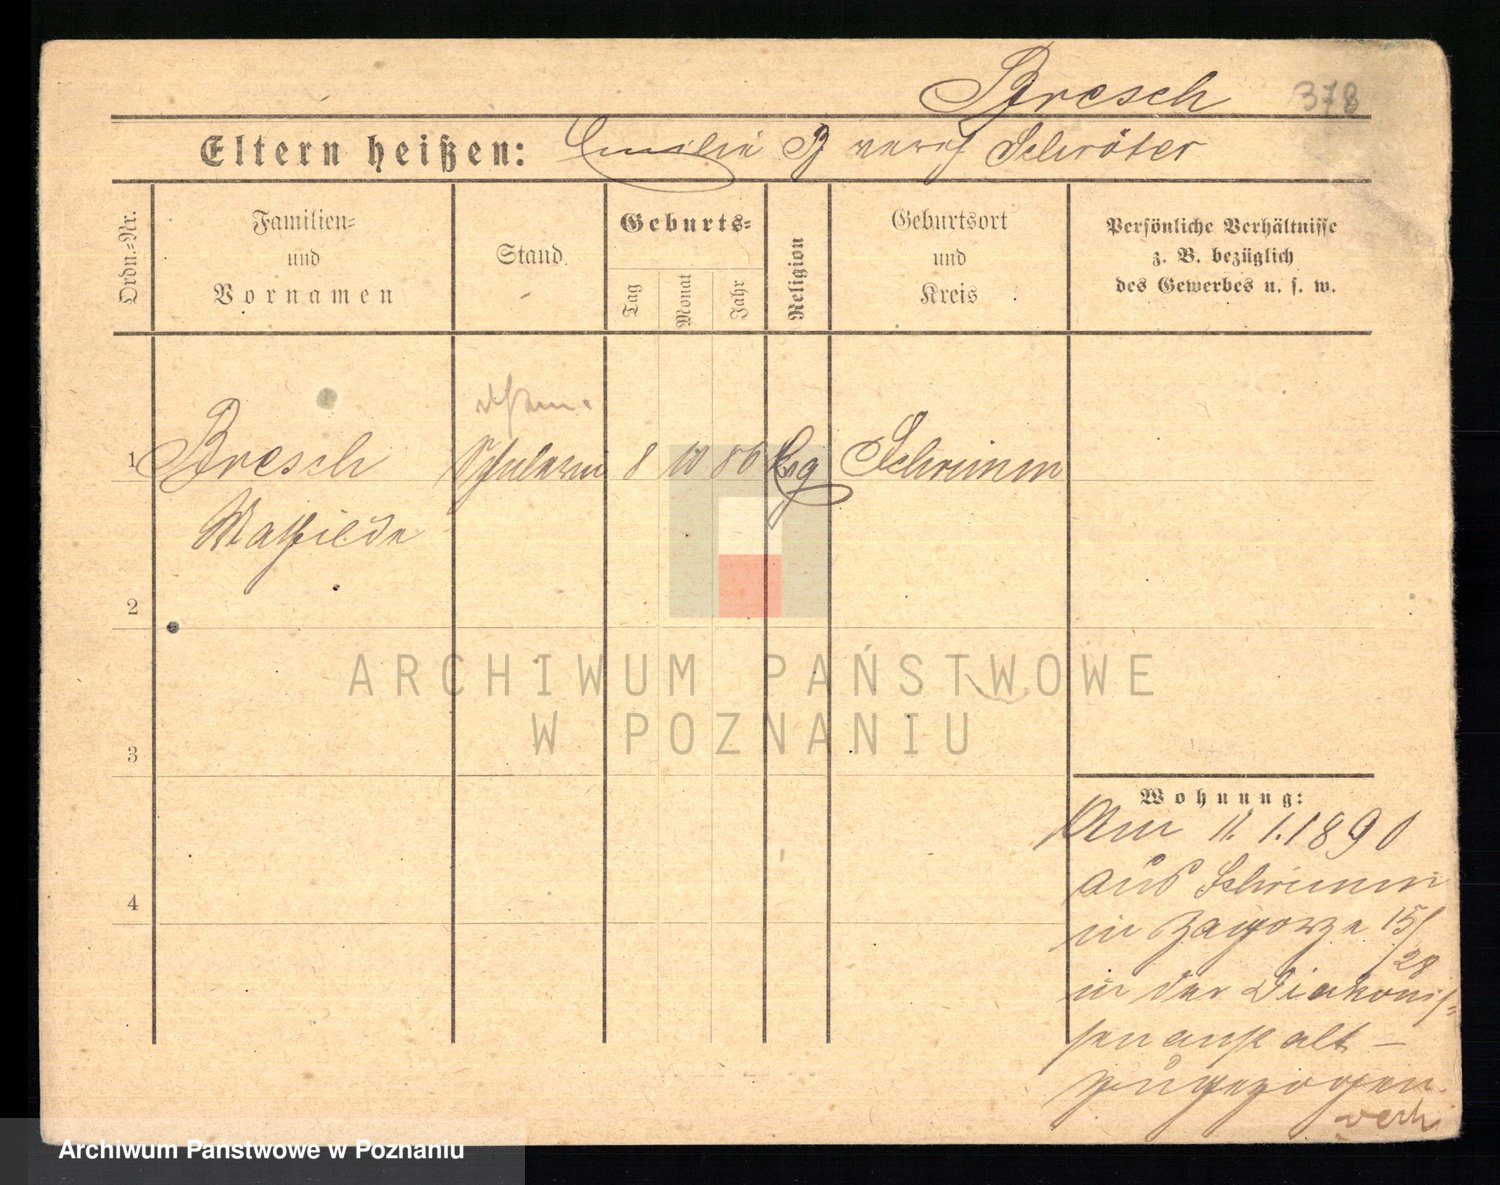 Bresch 378
Eltern heißen: Emilie B verh Schröter
Ordn.-Nr.
Familien-
und
Vornamen
Stand.
Geburts-
Tag
Monat
Jahr
Religion
Geburtsort
und
Kreis
Persönliche Verhältnisse
z. B. bezüglich
des Gewerbes u. s. w.
1 Bresch Schülerin 8 10 86 Evg Schrimm
Mathilde
2
ARCHIWUM PAŃSTWOWE
W POZNANIU
3
4
Wohnung:
Am 11.1.1890
aus Schrimm
in Zagorze 15/
28
in der Diakonis-
senanstalt –
zugezogen.
Archiwum Państwowe w Poznaniu